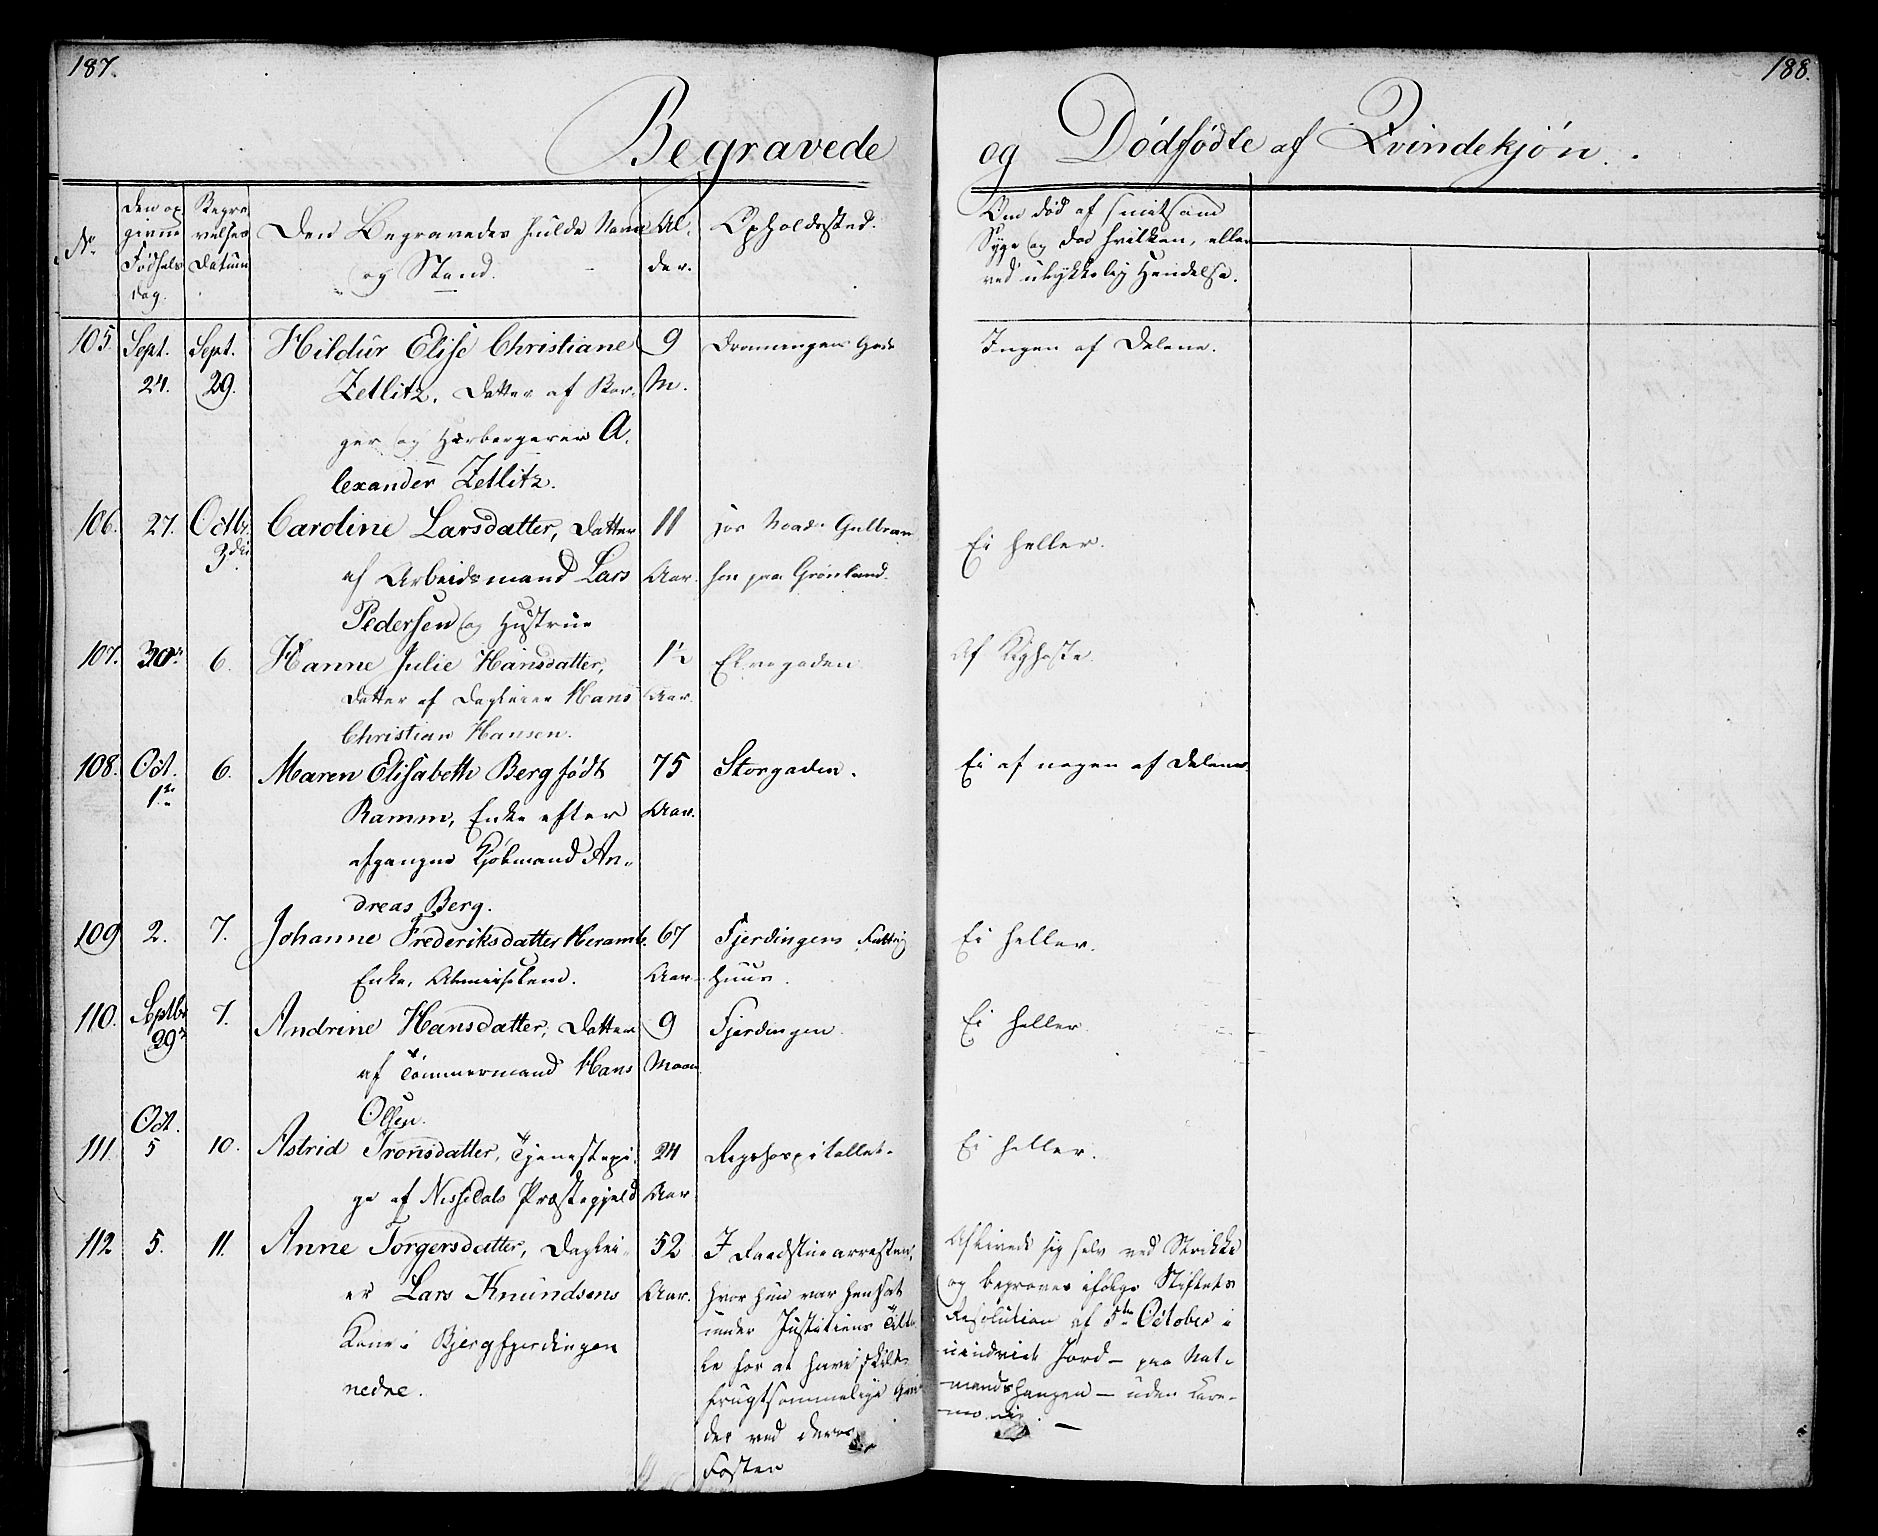 187.
188.
Begravede
og Dødfødte af Qvindekjøn.
No.
Den op
givne
Fødsels
dag.
Begra
velses
Datum
Den Begravedes fulde Navn
og Stand.
Al-
der.
Opholdssted.
Om død af smitsom
Syge og da hvilken, eller
ved ulykkelig Hendelse.
105. Sept. 24. Sept. 29.
Hildur Elise Christiane
Zetlitz, Datter af Bor-
ger og Herbergerer A.
lexander Zetlitz.
9
M.
Ingen af Delene.
106. 27. Octbr. 3die
Caroline Larsdatter, Datter
af Arbeidsmand Lars
Pedersen og Hustrue
11
Aar.
hos Gulbran
sen paa Grønland.
Ei heller.
107. 30. 6.
Hanne Julie Hansdatter,
Datter af Dagleier Hans
Christian Hansen.
1½
Aar.
Elvegaden
Af Kighoste.
108. Oct. 1ste 6.
Maren Elisabeth Berg født
Ramm, Enke efter
afgangne Kjøbmand An-
dreas Berg.
75
Aar.
Storgaden.
Ei af nogen af Delene.
109 2. 7.
Johanne Frederiksdatter Heramb.
Enke, Almisselem.
67
Aar.
Fjerdingens Fattig
Huus.
Ei heller.
110. Septbr 29 7.
Andrine Hansdatter, Datter
af Tømmermand Hans
Olsen.
9
Maan
Fjerdingen.
Ei heller.
111. Oct. 5 10.
Astrid Tronsdatter, Tjenestepi-
ge af Nissedals Præstegjeld
24
Aar
Rigshospitallet.
Ei heller.
112 5. 11.
Anne Torgersdatter, Daglei-
er Lars Knundsens
Kone i Bjergfjerdingen
nedre.
52
Aar.
I Raadstuearresten,
hvor hun var hensat
under Justitiens Tilta
le for at have skildt
frugtsommelige Qvin
der ved deres
Foster
Aflivede sig selv ved Strikke
og begraves ifølge Stiftets
Resolution af 5te October i
uindviet Jord – paa Nat-
mandshaugen – uden Cere-
monie. –